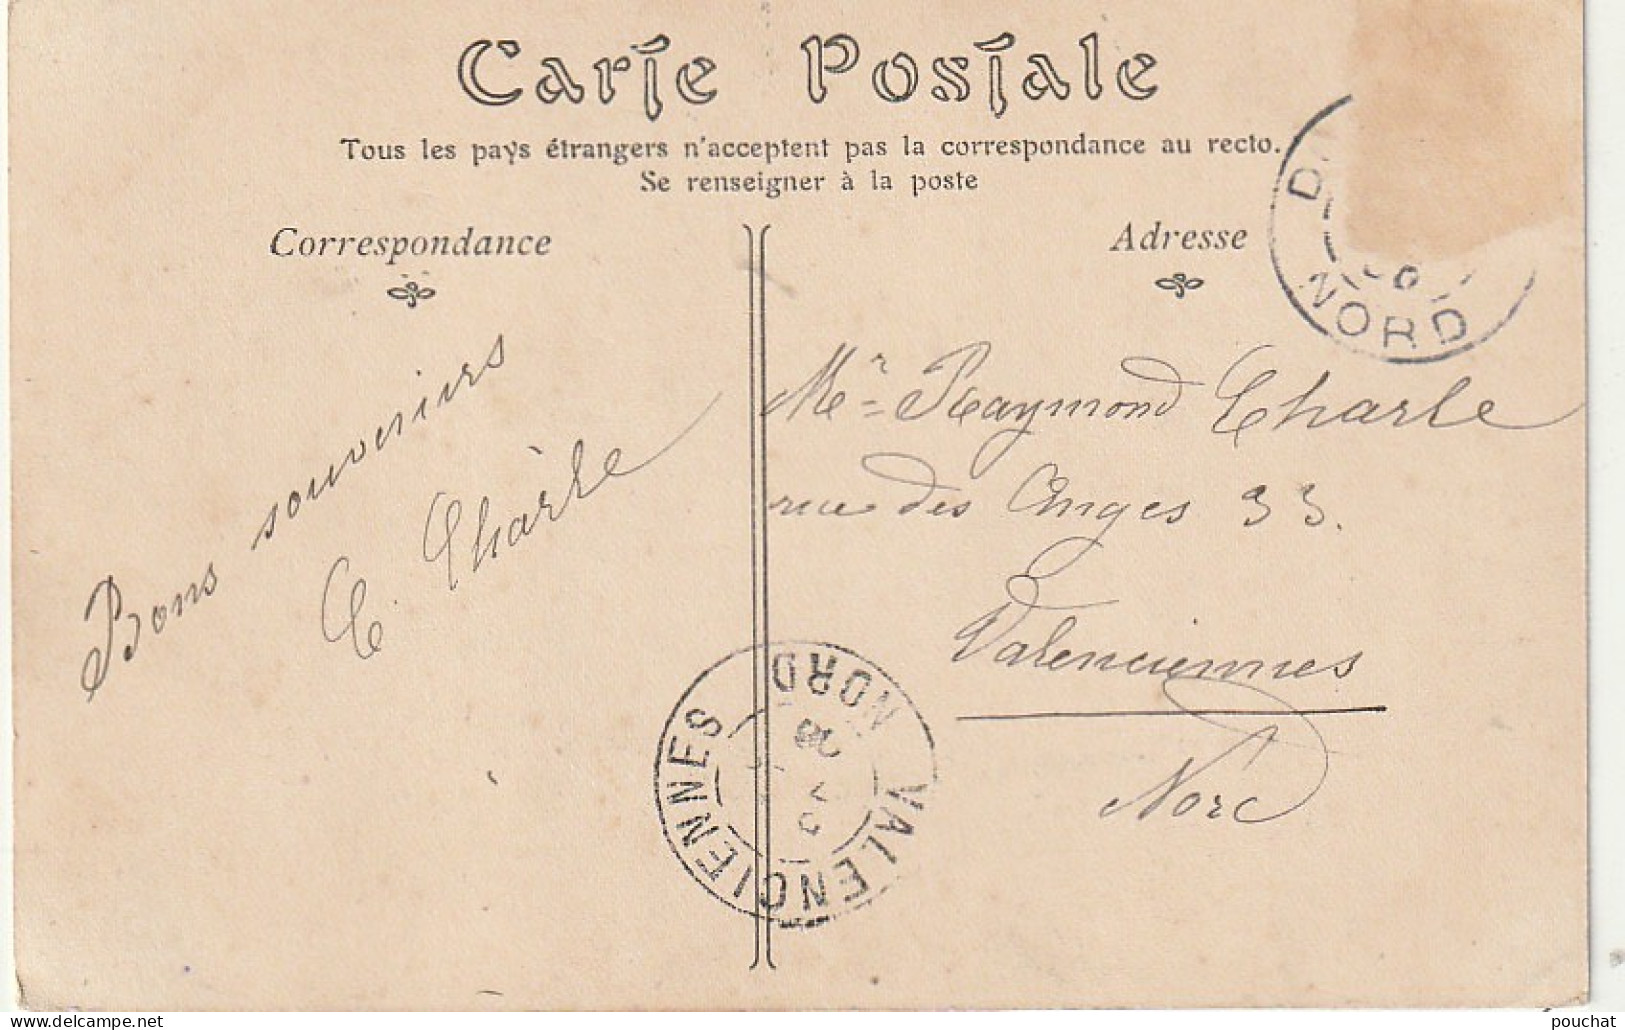 Carte Postale
Tous les pays étrangers n'acceptent pas la correspondance au recto.
Se renseigner à la poste
Correspondance
Adresse
Bons souvenirs
C. Charle
Mr Raymond Charle
rue des Anges 33.
Valenciennes
Nord
NORD
VALENCIENNES
NORD
pouchat